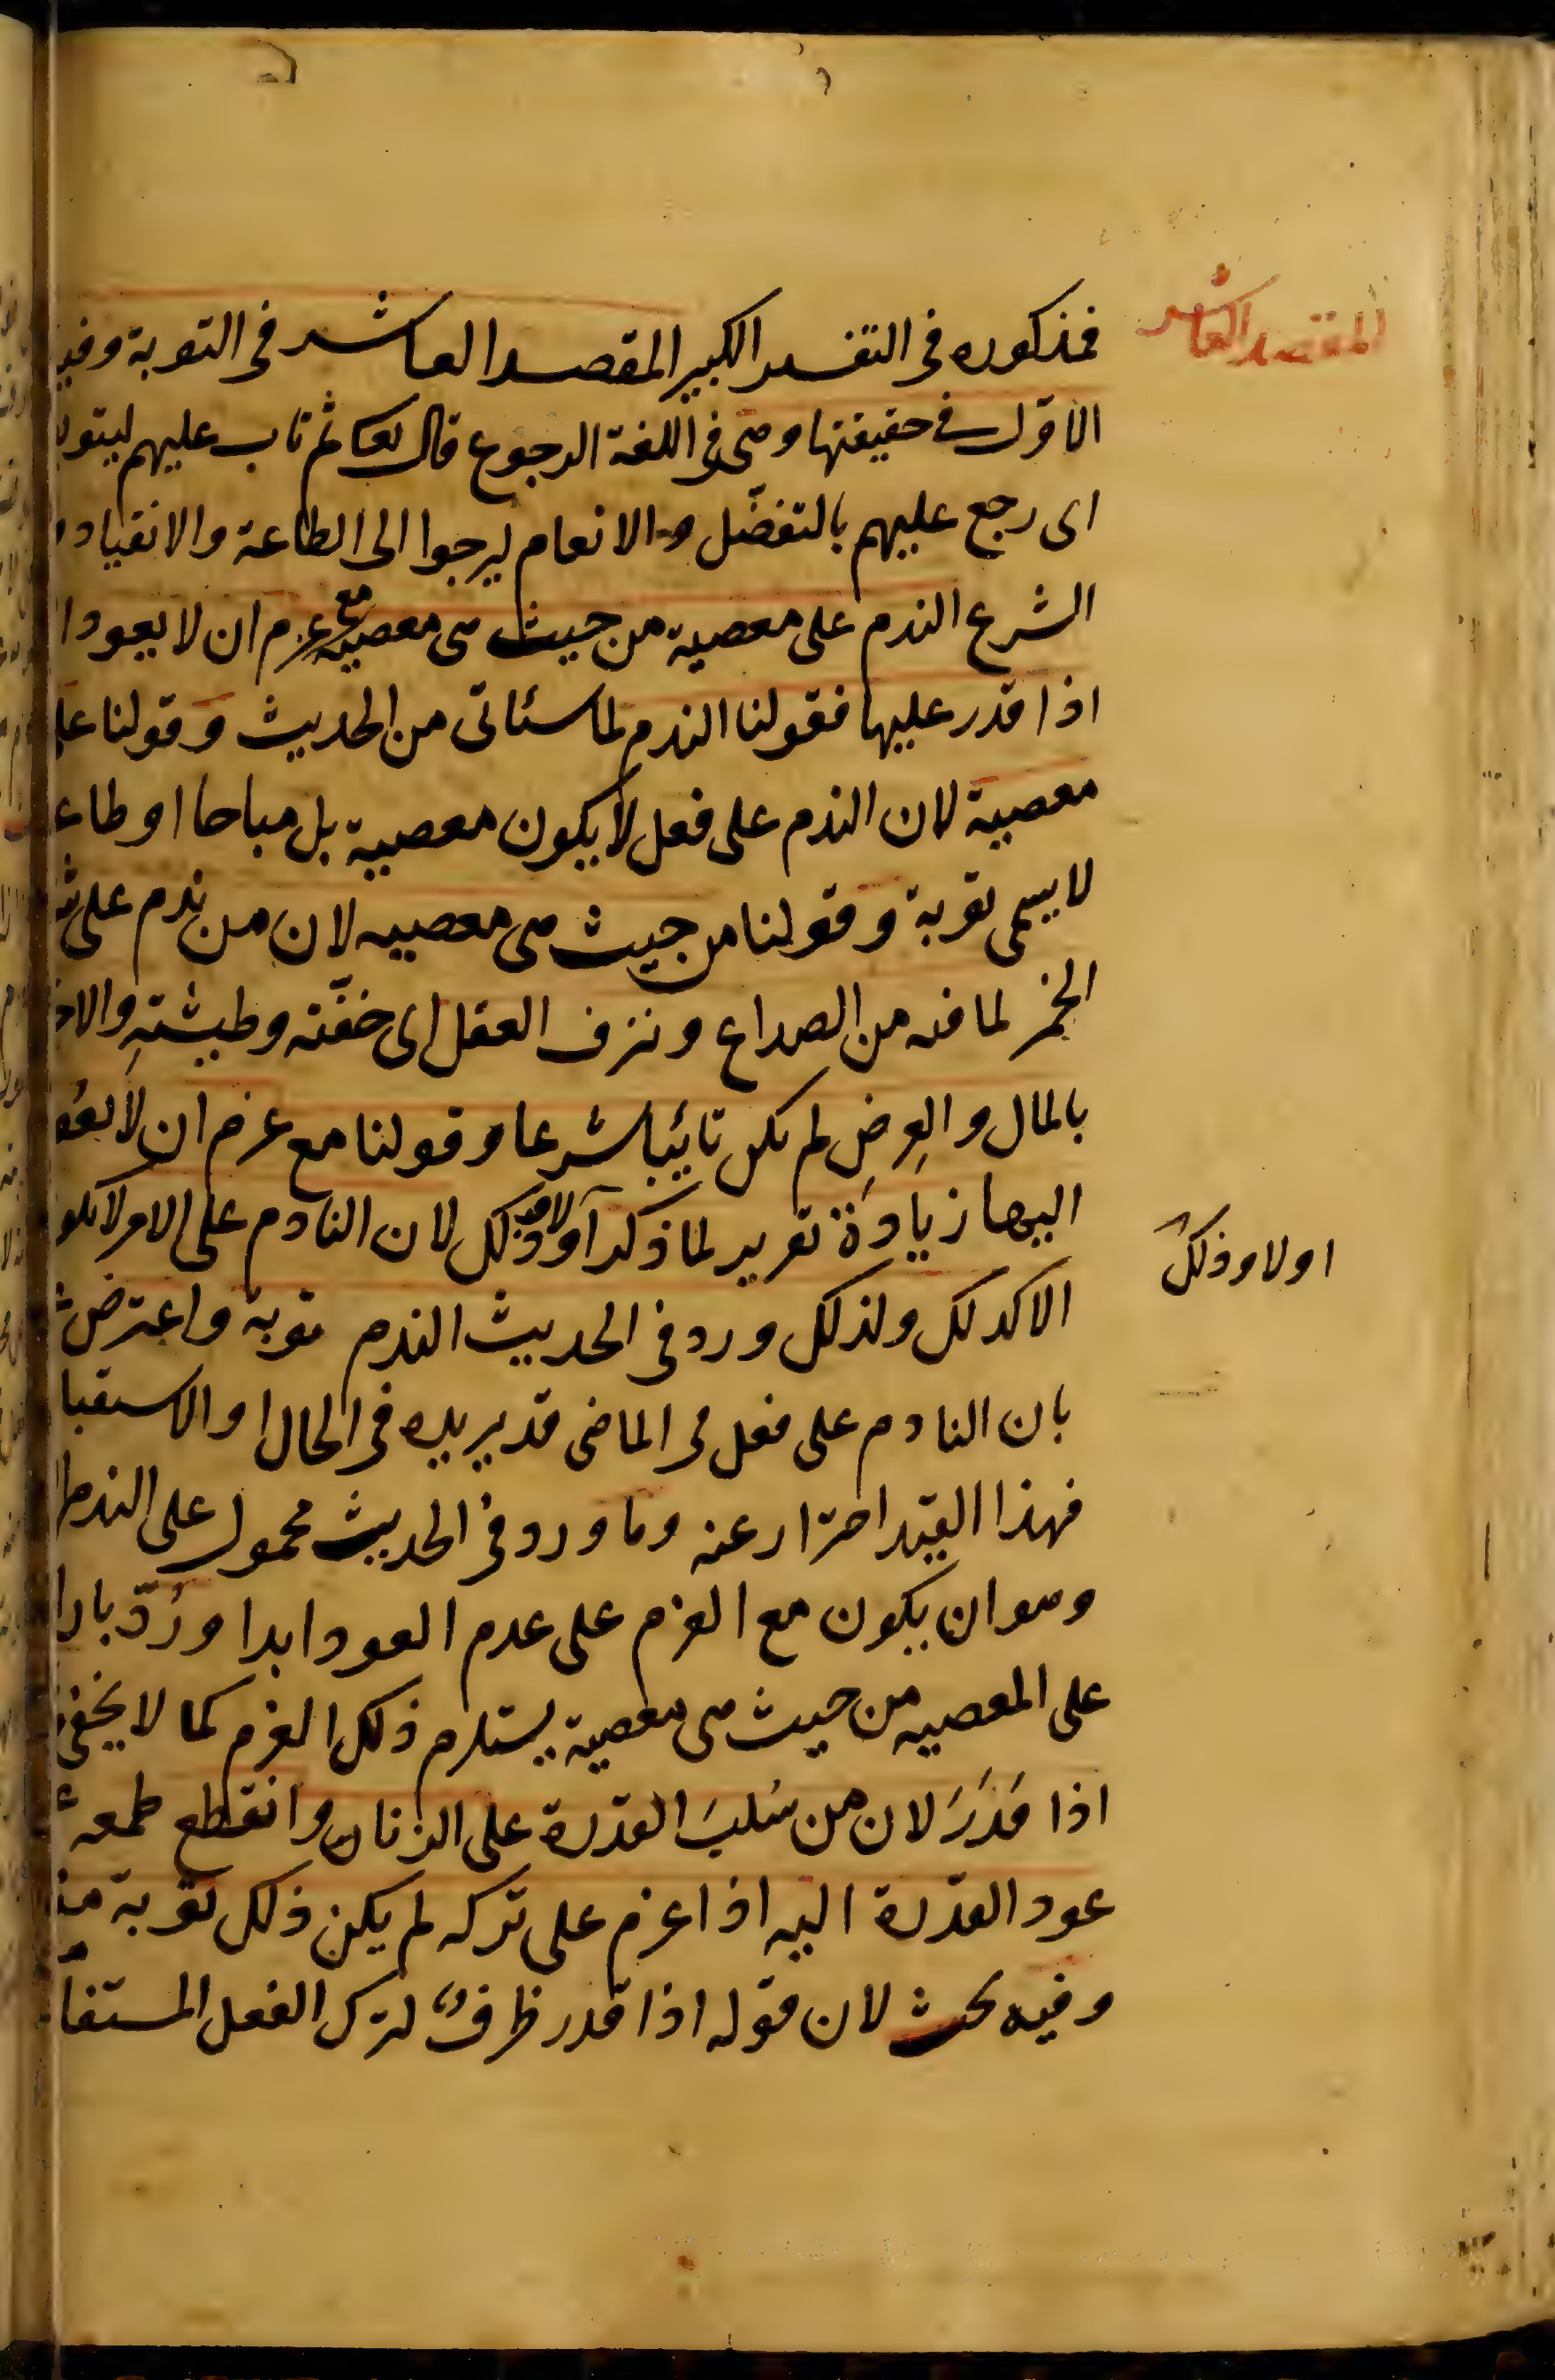 المقصد العاشر
فمذكوره فى التفسير الكبير المقصد العاشر فى التوبة وفيه
الاول فى حقيقتها وهى فى اللغة الرجوع قال تعا ثم تاب عليهم ليتوبوا
اى رجع عليهم بالتفضّل والانعام ليرجوا الى الطاعة والانقياد و
الشرع الندم على معصية من حيث هى معصية مع عزم ان لا يعود ا
اذا قدر عليها فقولنا الندم لما سيأتى من الحديث وقولنا على
معصية لان الندم على فعل لا يكون معصية بل مباحا او طاعـ
لا يسمى توبة وقولنا من حيث هى معصيه لان من ندم على شـ
الخمر لما فيه من الصداع ونزف العقل اى خفّته وطيشتهِ والاخـ
بالمال والعِرضِ لم يكن تائبا شرعا وقولنا مع عزم ان لا يعو
اليها زيادة تقرير لما ذكر اولا وذلك لان النادم على الامر لا يكو
اولا وذلك
الا كذلك ولذلك ورد فى الحديث الندم توبة واعترض
بان النادم على فعل فى الماضى قد يريده فى الحال او الاستقبا
فهذا القيد احتراز عنه وما ورد فى الحديث محمول على الندم ا
وهو ان يكون مع العزم على عدم العود ابدا ورُدّ بان ا
على المعصيه من حيث هى معصية يستلزم ذلك العزم كما لا يخفى
اذا قَدَرَ لان من سُلبَ القدرة على الزنا وانقطع طمعه
عود القدرة اليه اذا عزم على تركه لم يكن ذلك توبة منه
وفيه بحث لان قوله اذا قدر ظرف لترك الفعل المستفا